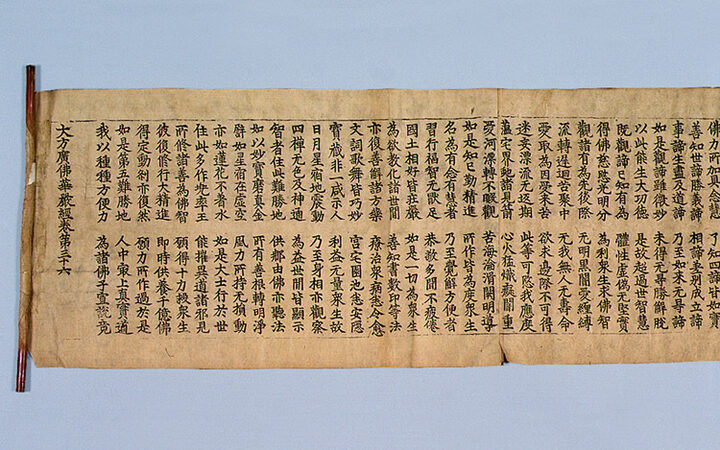 佛力所加具念慧　了知四諦皆如實
善知世諦勝義諦　相諦差別成立諦
事諦生盡及道諦　乃至如來无㝵諦
如是觀諦雖微妙　未得无㝵勝解脫
以此能生大功德　是故超過世智慧
既觀諦已知有為　體性虛偽无堅實
得佛慈愍光明分　為利衆生求佛智
觀諸有為先後際　无明黑闇愛纏縛
流轉遲迴苦聚中　无我无人无壽命
愛取為因受來苦　欲求邊際不可得
迷妄漂流无返期　此等可愍我應度
蘊宅界虵諸見箭　心火猛熾癡闇重
愛河漂轉不暇觀　苦海淪湑闕明導
如是知已勤精進　所作皆為度衆生
名為有念有慧者　乃至覺解方便者
習行福智无猒足　恭敬多聞不疲倦
國土相好皆莊嚴　如是一切為衆生
為欲教化諸世間　善知書數印等法
亦復善解諸方藥　療治衆病悉令愈
文詞歌舞皆巧妙　宮宅園池悉安隱
寶藏非一咸示人　利益无量衆生故
日月星宿地震動　乃至身相亦觀察
四禪无色及神通　為益世間皆顯示
智者住此難勝地　供那由佛亦聽法
如以妙寶磨真金　所有善根轉明淨
譬如星宿在虛空　風力所持无損動
亦如蓮花不著水　如是大士行於世
住此多作兜率王　能摧異道諸邪見
所修諸善為佛智　願得十力救衆生
彼復修行大精進　即時供養千億佛
得定動剎亦復然　願力所作過於是
如是第五難勝地　人中最上真實道
我以種種方便力　為諸佛子宣說竟
大方廣佛華嚴經卷第三十六